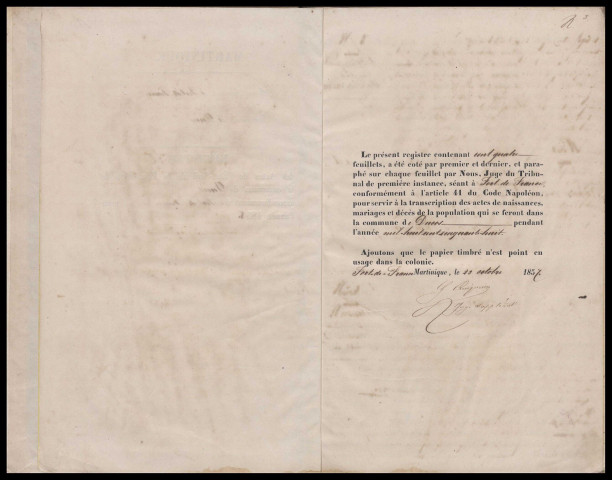 Le présent registre contenant cent quatre
feuillets, a été coté par premier et dernier, et para-
phé sur chaque feuillet par Nous, Juge du Tribu-
nal de première instance, séant à Fort de France
conformément à l'article 41 du Code Napoléon,
pour servir à la transcription des actes de naissances,
mariages et décès de la population qui se feront dans
la commune de pendant
l'année mil huit cent cinquante huit.
Ajoutons que le papier timbré n'est point en
usage dans la colonie.
Fort-de-France Martinique, le 22 octobre 1857
Juge suppléant